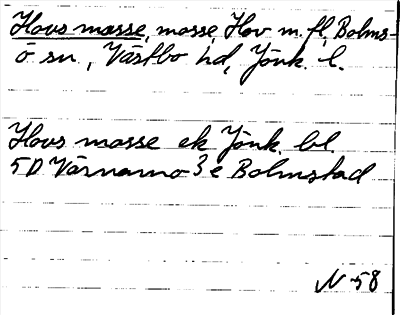 Hovs mosse, mosse, Hov m. fl., Bolms-
ö sn, Västbo hd, Jönk. l.
Hovs mosse ek Jönk. bl.
5D Värnamo 3e Bolmstad
N 58